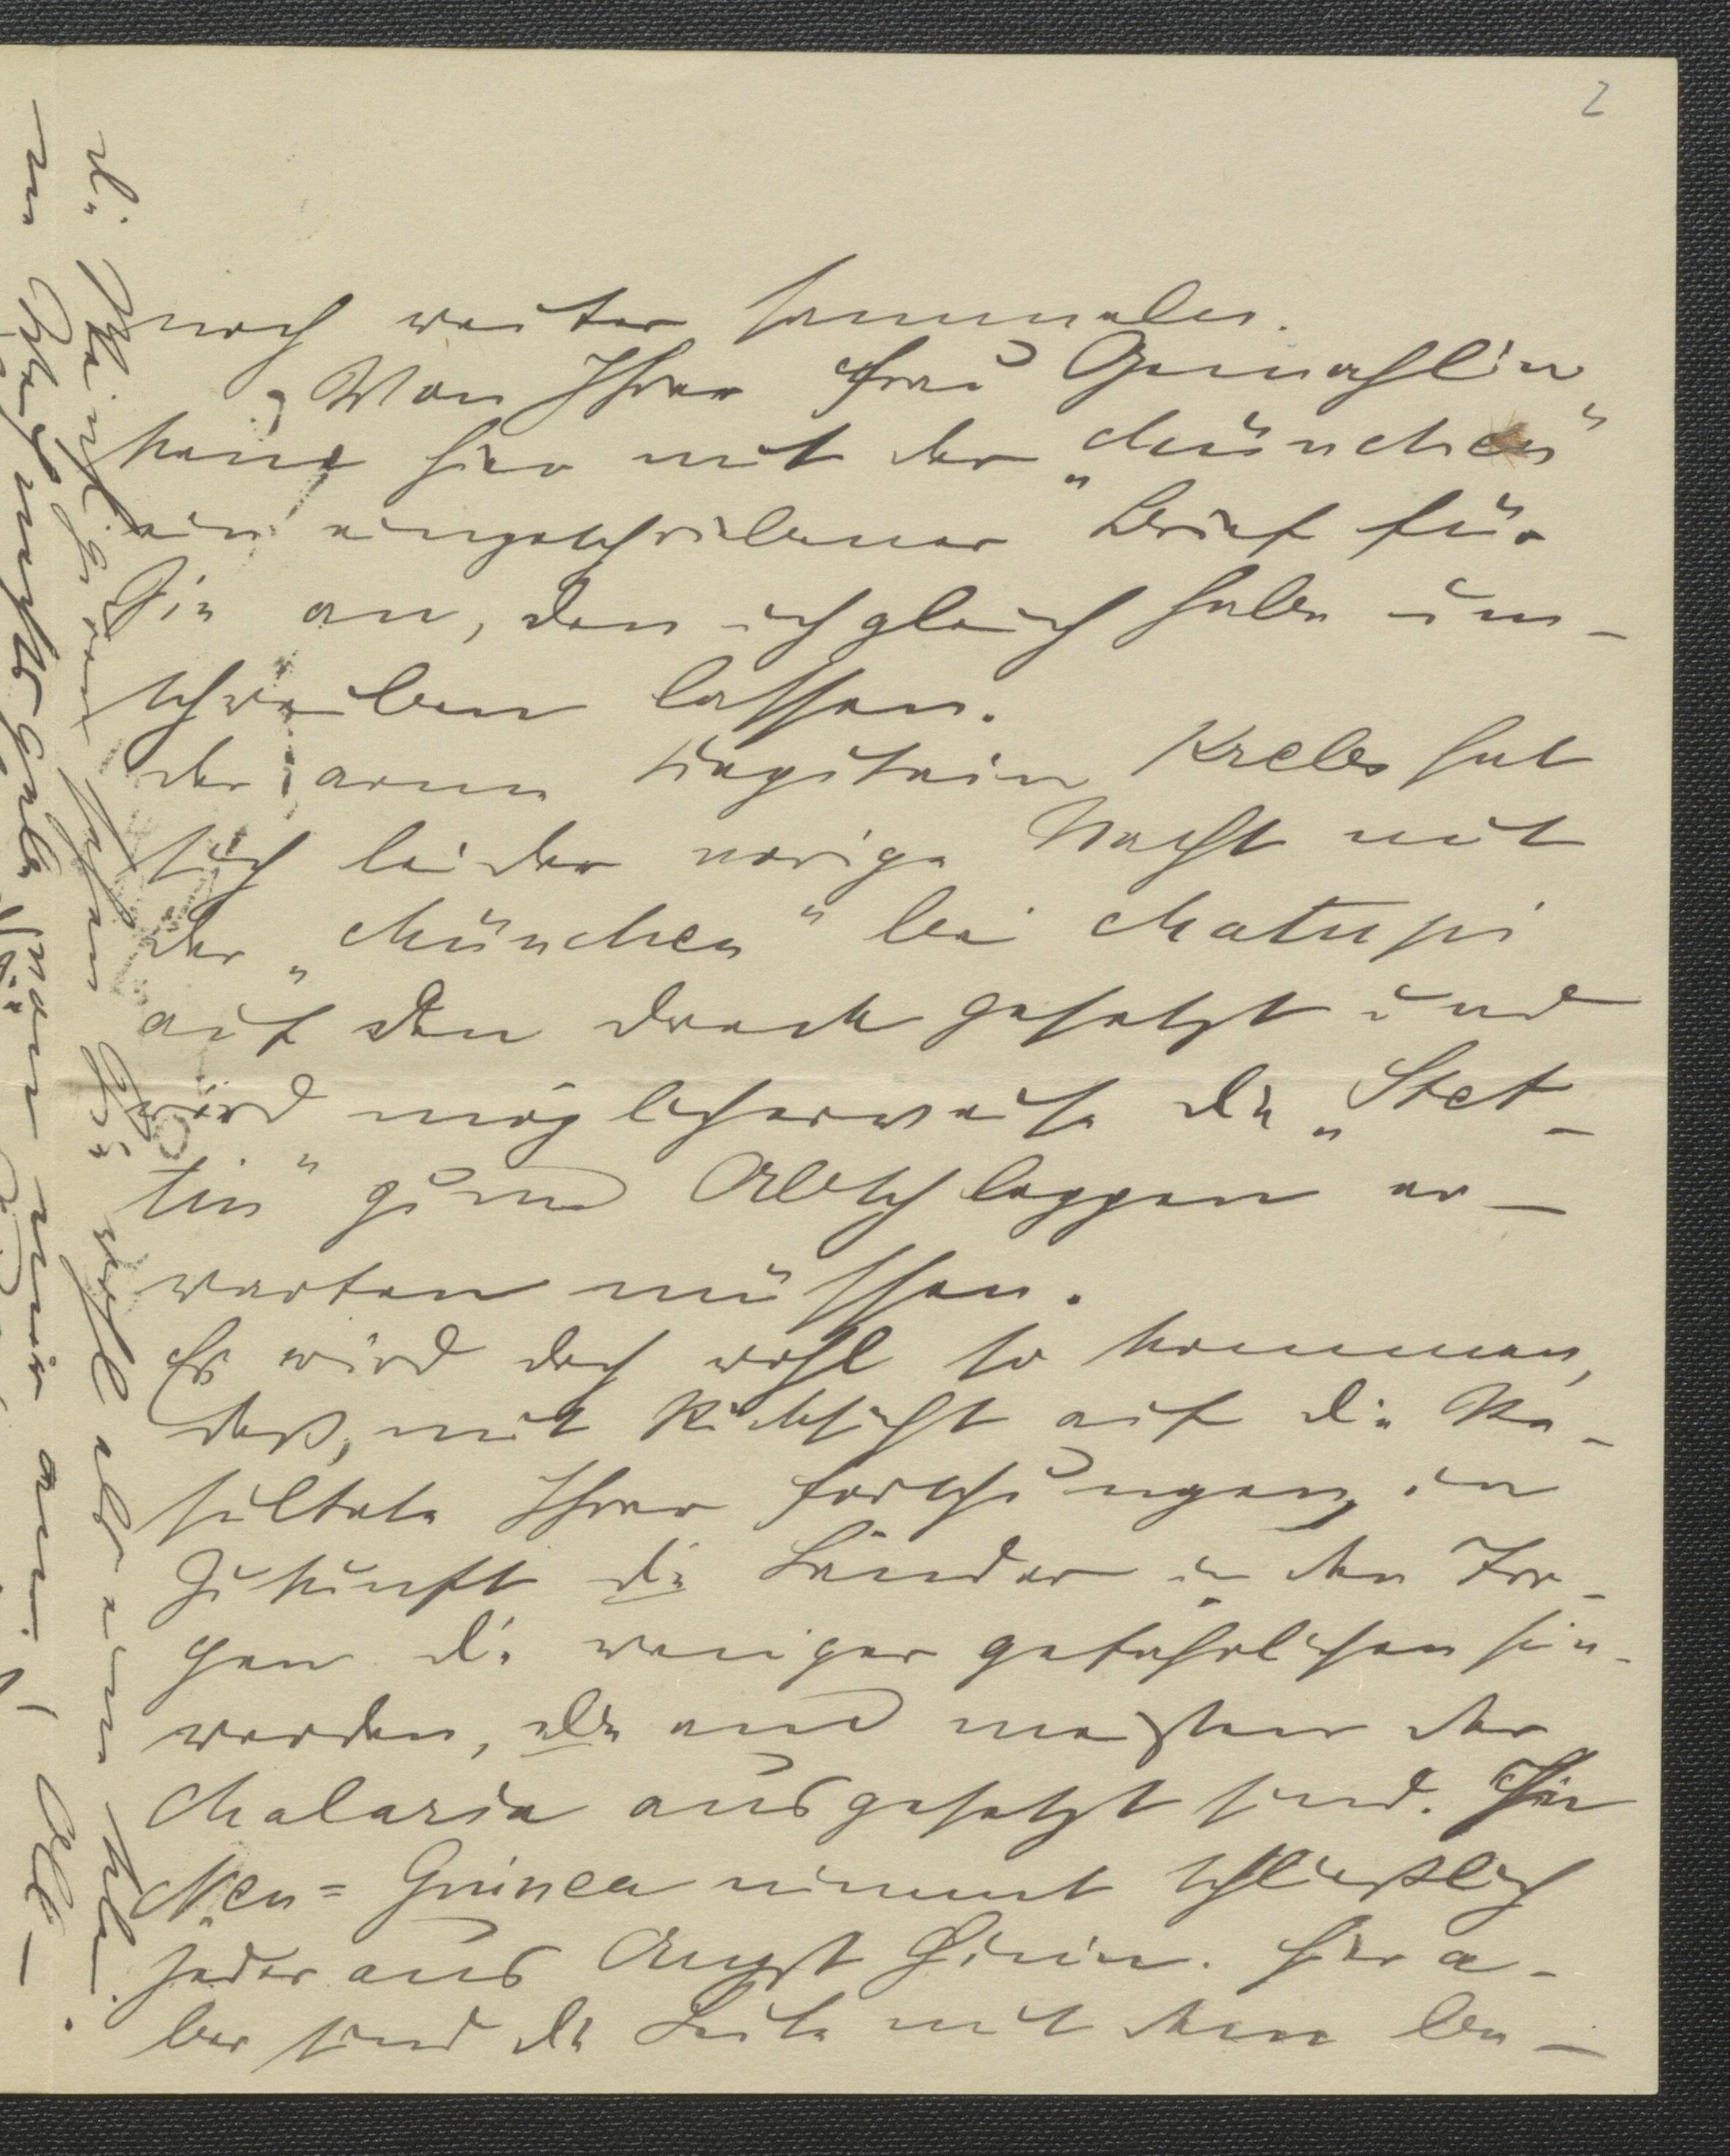 2
noch weiter sammeln.
Von Ihrer Frau Gemahlin
kam hier mit der „München"
ein eingeschriebener Brief für
Sie an, den ich gleich habe um-
schreiben lassen.
Der arme Kapitain Krebs hat
sich leider vorige Nacht mit
der „München" bei Matupi
auf den Dreck gesetzt und
wird möglicherweise die „Stet-
tin" zum Abschleppen er-
warten müssen.
Es wird doch wohl so kommen,
daß, mit Rücksicht auf die Re-
sultate Ihrer Forschungen, in
Zukunft die Länder in den Tro-
pen die weniger gefährlichen sein
werden, die am meisten der
Malaria ausgesetzt sind. In
Neu-Guinea nimmt schließlich
jeder aus Angst Chinin. Hier a-
ber sind die Leute mit dem be-
die Kleinigkeiten sehen Sie wohl ab und